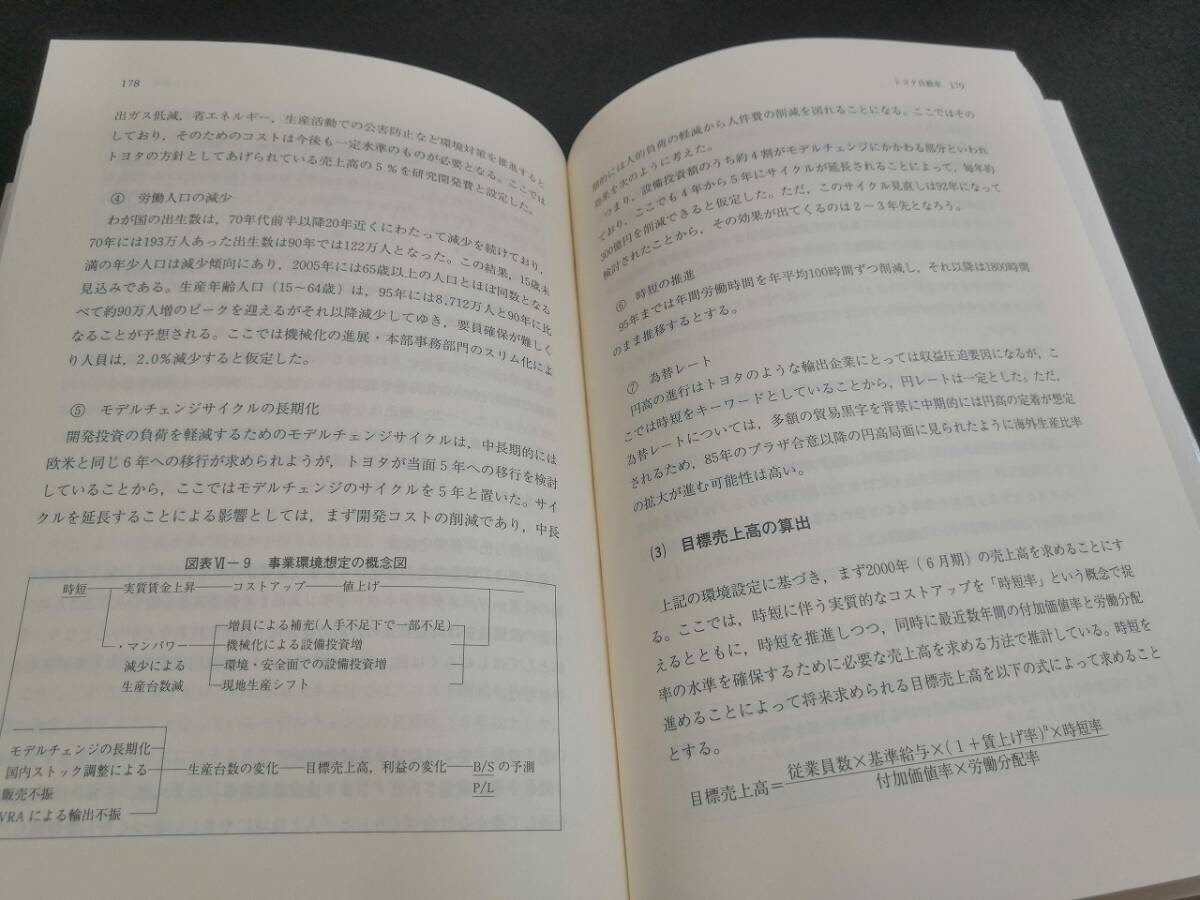 178
出ガス低減，省エネルギー，生産活動での公害防止など環境対策を推進すると
しており，そのためのコストは今後も一定水準のものが必要となる。ここでは
トヨタの方針としてあげられている売上高の5％を研究開発費と設定した。
④ 労働人口の減少
わが国の出生数は，70年代前半以降20年近くにわたって減少を続けており，
70年には193万人あった出生数は90年では122万人となった。この結果，15歳未
満の年少人口は減少傾向にあり，2005年には65歳以上の人口とほぼ同数となる
見込みである。生産年齢人口（15～64歳）は，95年には8,712万人と90年に比
べて約90万人増のピークを迎えるがそれ以降減少してゆき，要員確保が難しく
なることが予想される。ここでは機械化の進展・本部事務部門のスリム化によ
り人員は，2.0％減少すると仮定した。
⑤ モデルチェンジサイクルの長期化
開発投資の負荷を軽減するためのモデルチェンジサイクルは，中長期的には
欧米と同じ6年への移行が求められようが，トヨタが当面5年への移行を検討
していることから，ここではモデルチェンジのサイクルを5年と置いた。サイ
クルを延長することによる影響としては，まず開発コストの削減であり，中長
図表Ⅵ－9 事業環境想定の概念図
時短 実質賃金上昇 コストアップ 値上げ
増員による補充(人手不足下で一部不足)
・マンパワー 機械化による設備投資増
減少による 環境・安全面での設備投資増
生産台数減 現地生産シフト
モデルチェンジの長期化
国内ストック調整による 生産台数の変化 目標売上高，利益の変化 B/Sの予測
販売不振 P/L
VRAによる輸出不振
トヨタ自動車 179
期的には人的負荷の軽減から人件費の削減を図れることになる。ここではその
効果を次のように考えた。
つまり，設備投資額のうち約4割がモデルチェンジにかかわる部分といわれ
ており，ここでも4年から5年にサイクルが延長されることによって，毎年約
300億円を削減できると仮定した。ただ，このサイクル見直しは92年になって
検討されたことから，その効果が出てくるのは2～3年先となろう。
⑥ 時短の推進
95年までは年間労働時間を年平均100時間ずつ削減し，それ以降は1800時間
のまま推移するとする。
⑦ 為替レート
円高の進行はトヨタのような輸出企業にとっては収益圧迫要因になるが，こ
こでは時短をキーワードとしていることから，円レートは一定とした。ただ，
為替レートについては，多額の貿易黒字を背景に中期的には円高の定着が想定
されるため，85年のプラザ合意以降の円高局面に見られたように海外生産比率
の拡大が進む可能性は高い。
(3) 目標売上高の算出
上記の環境設定に基づき，まず2000年（6月期）の売上高を求めることにす
る。ここでは，時短に伴う実質的なコストアップを「時短率」という概念で捉
えるとともに，時短を推進しつつ，同時に最近数年間の付加価値率と労働分配
率の水準を確保するために必要な売上高を求める方法で推計している。時短を
進めることによって将来求められる目標売上高を以下の式によって求めること
とする。
目標売上高＝従業員数×基準給与×(1＋賃上げ率)ⁿ×時短率
付加価値率×労働分配率